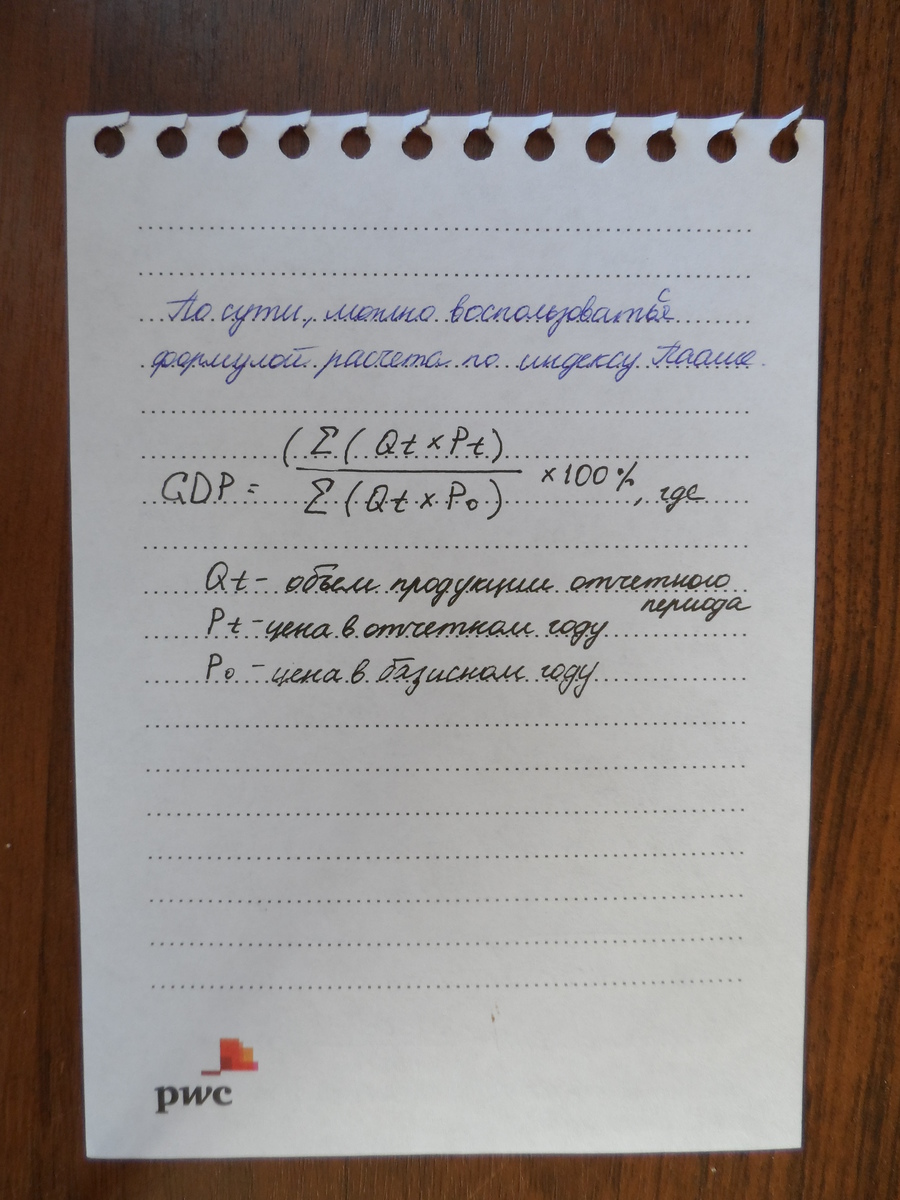 По сути, можно воспользоваться
формулой расчета по индексу Пааше
GDP = (Σ(Qt × Pt) / Σ(Qt × P₀) × 100%, где
Qt - объем продукции отчетного периода
Pt - цена в отчетном году
P₀ - цена в базисном году
pwc